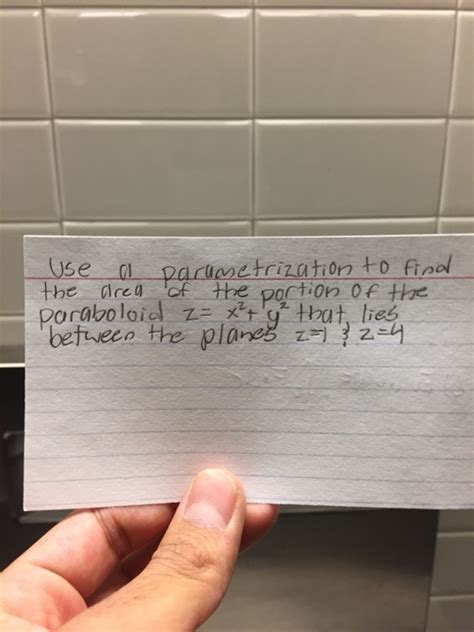 Use a parametrization to find
the area of the portion of the
paraboloid z= x²+ y² that lies
between the planes z=1 & z=4